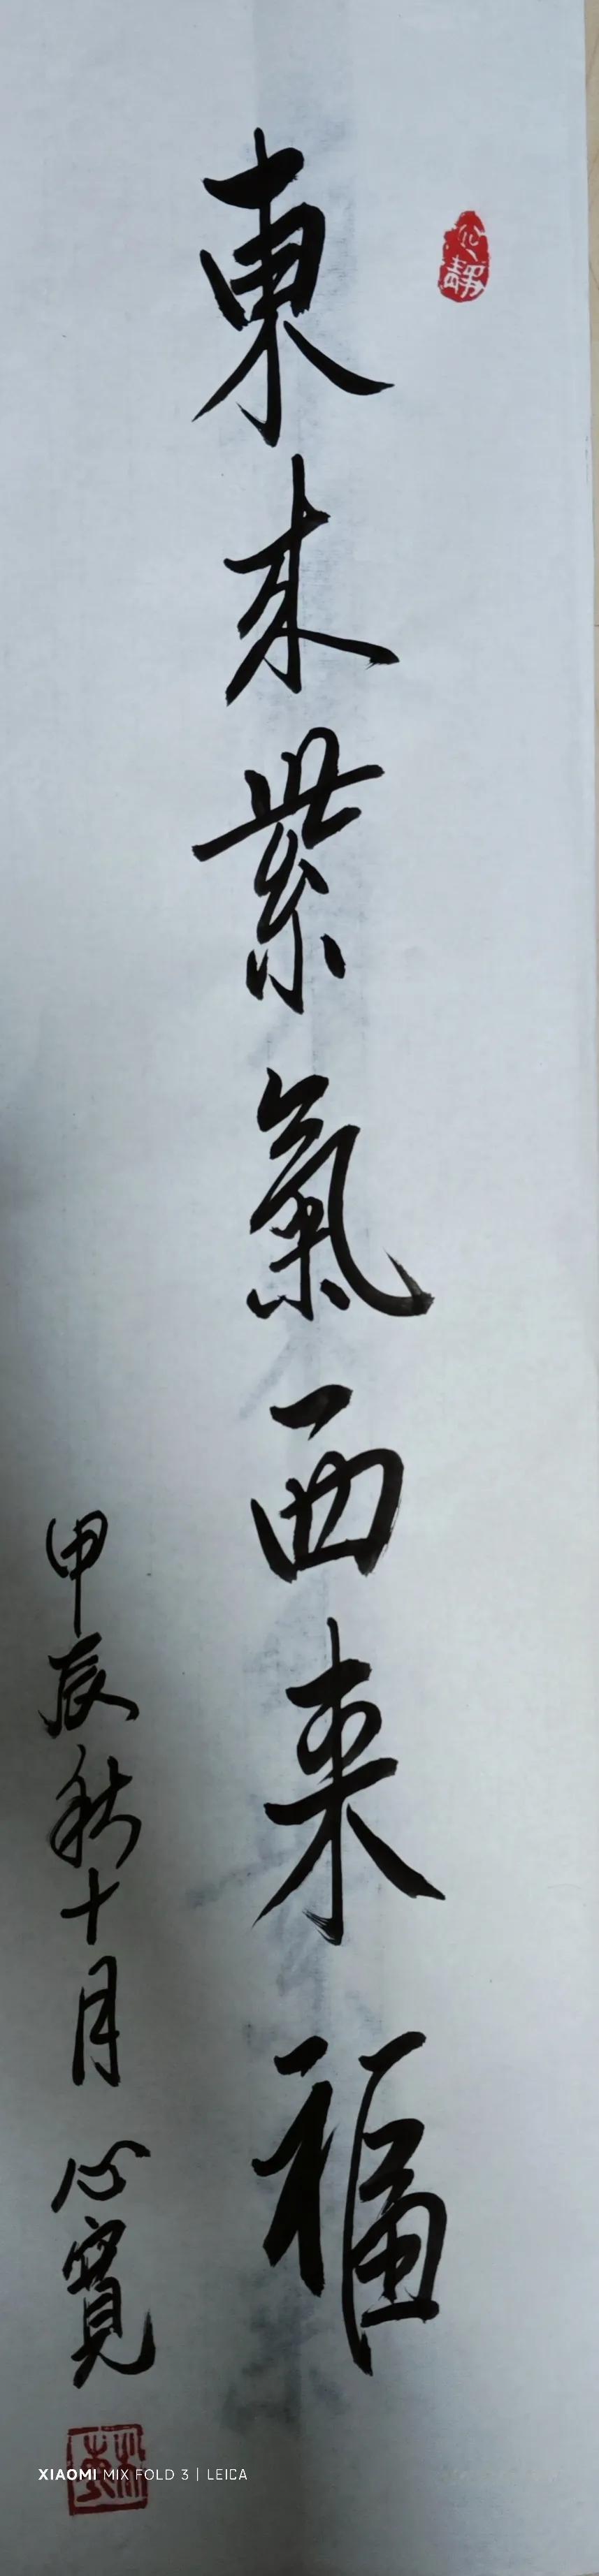 心靜
東来紫氣西来福
甲辰秋十月 心寬
XIAOMI MIX FOLD 3 | LEICA